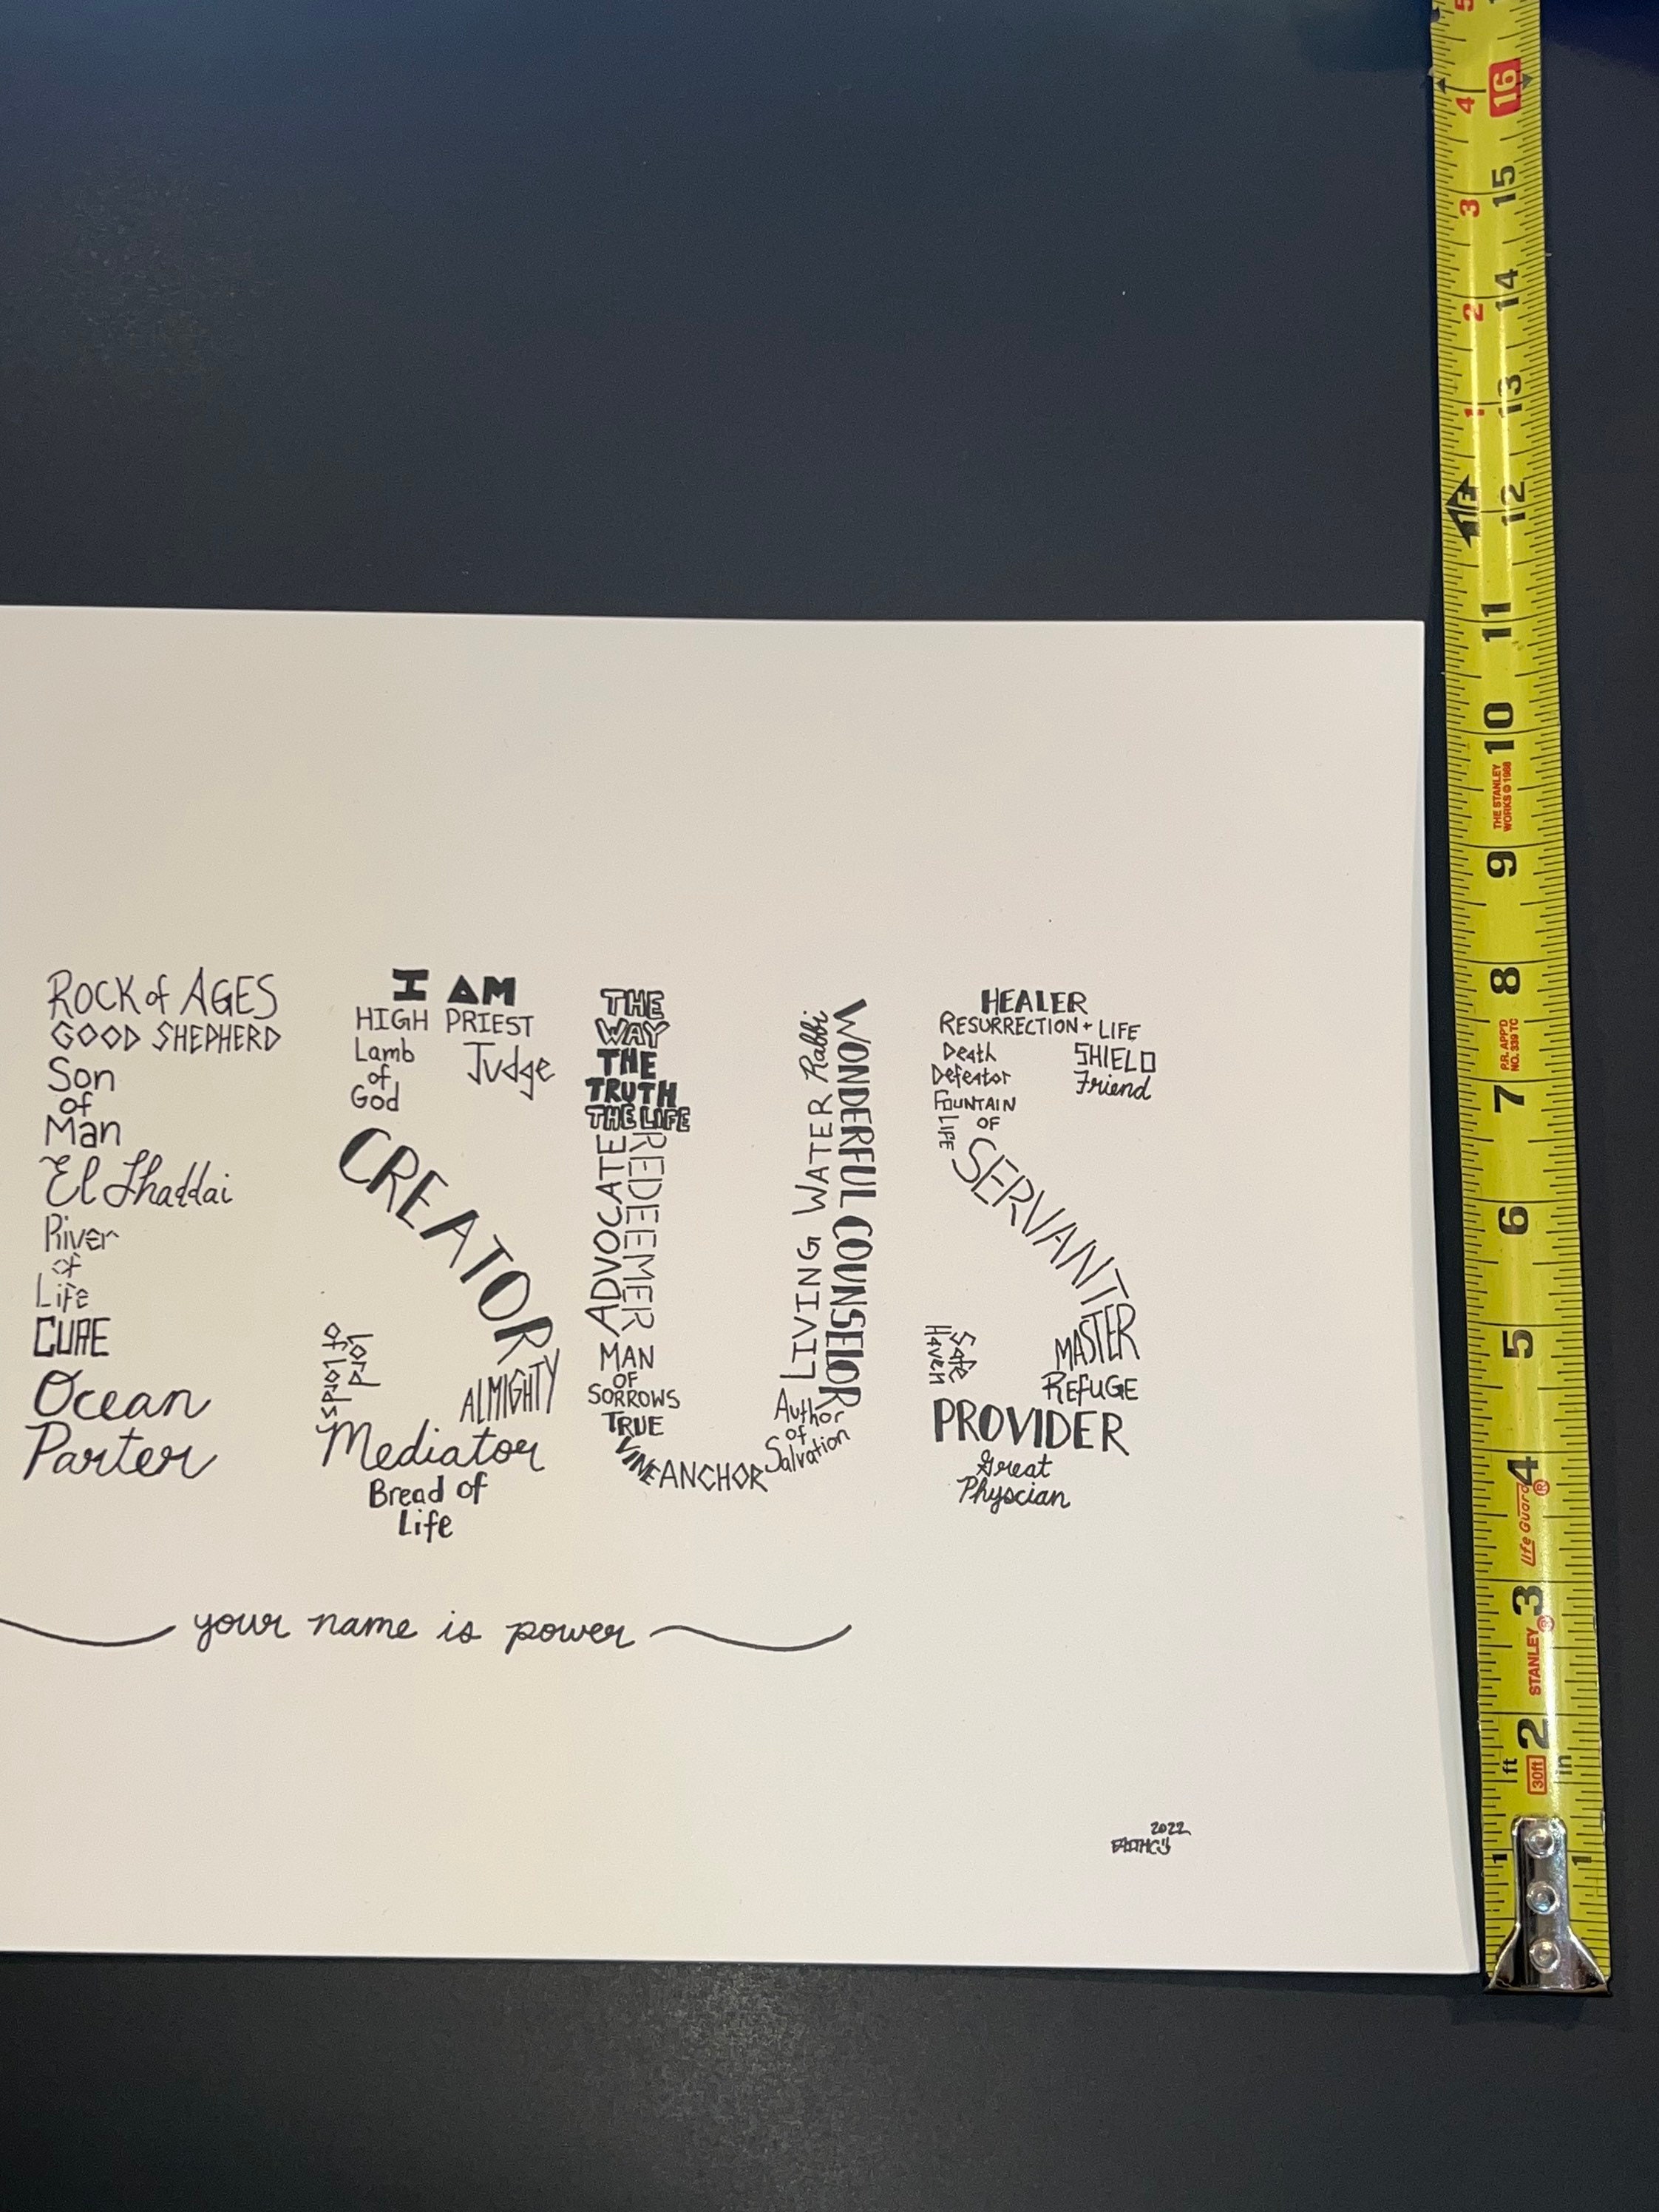 ROCK of AGES
GOOD SHEPHERD
Son
of
Man
El Shaddai
River
of
Life
CURE
Ocean
Parter
I AM
HIGH PRIEST
Lamb
of
God
Judge
CREATOR
Lord
of Lords
ALMIGHTY
Mediator
Bread of
Life
THE
WAY
THE
TRUTH
THE LIFE
ADVOCATE
REDEEMER
MAN
OF
SORROWS
TRUE
VINE
ANCHOR
Author
of
Salvation
LIVING WATER
Rabbi
WONDERFUL COUNSELOR
HEALER
RESURRECTION + LIFE
Death
Defeator
SHIELD
Friend
FOUNTAIN
OF
LIFE
SERVANT
Safe
Haven
MASTER
REFUGE
PROVIDER
Great
Physcian
your name is power
2022
5
16
4
15
3
14
2
13
1
12
1F
11
10
THE STANLEY
WORKS © 1988
9
8
P.R. APP'D
NO. 339 TC
7
6
5
4
life Guard®
3
STANLEY®
2
ft
30ft
in
1
1